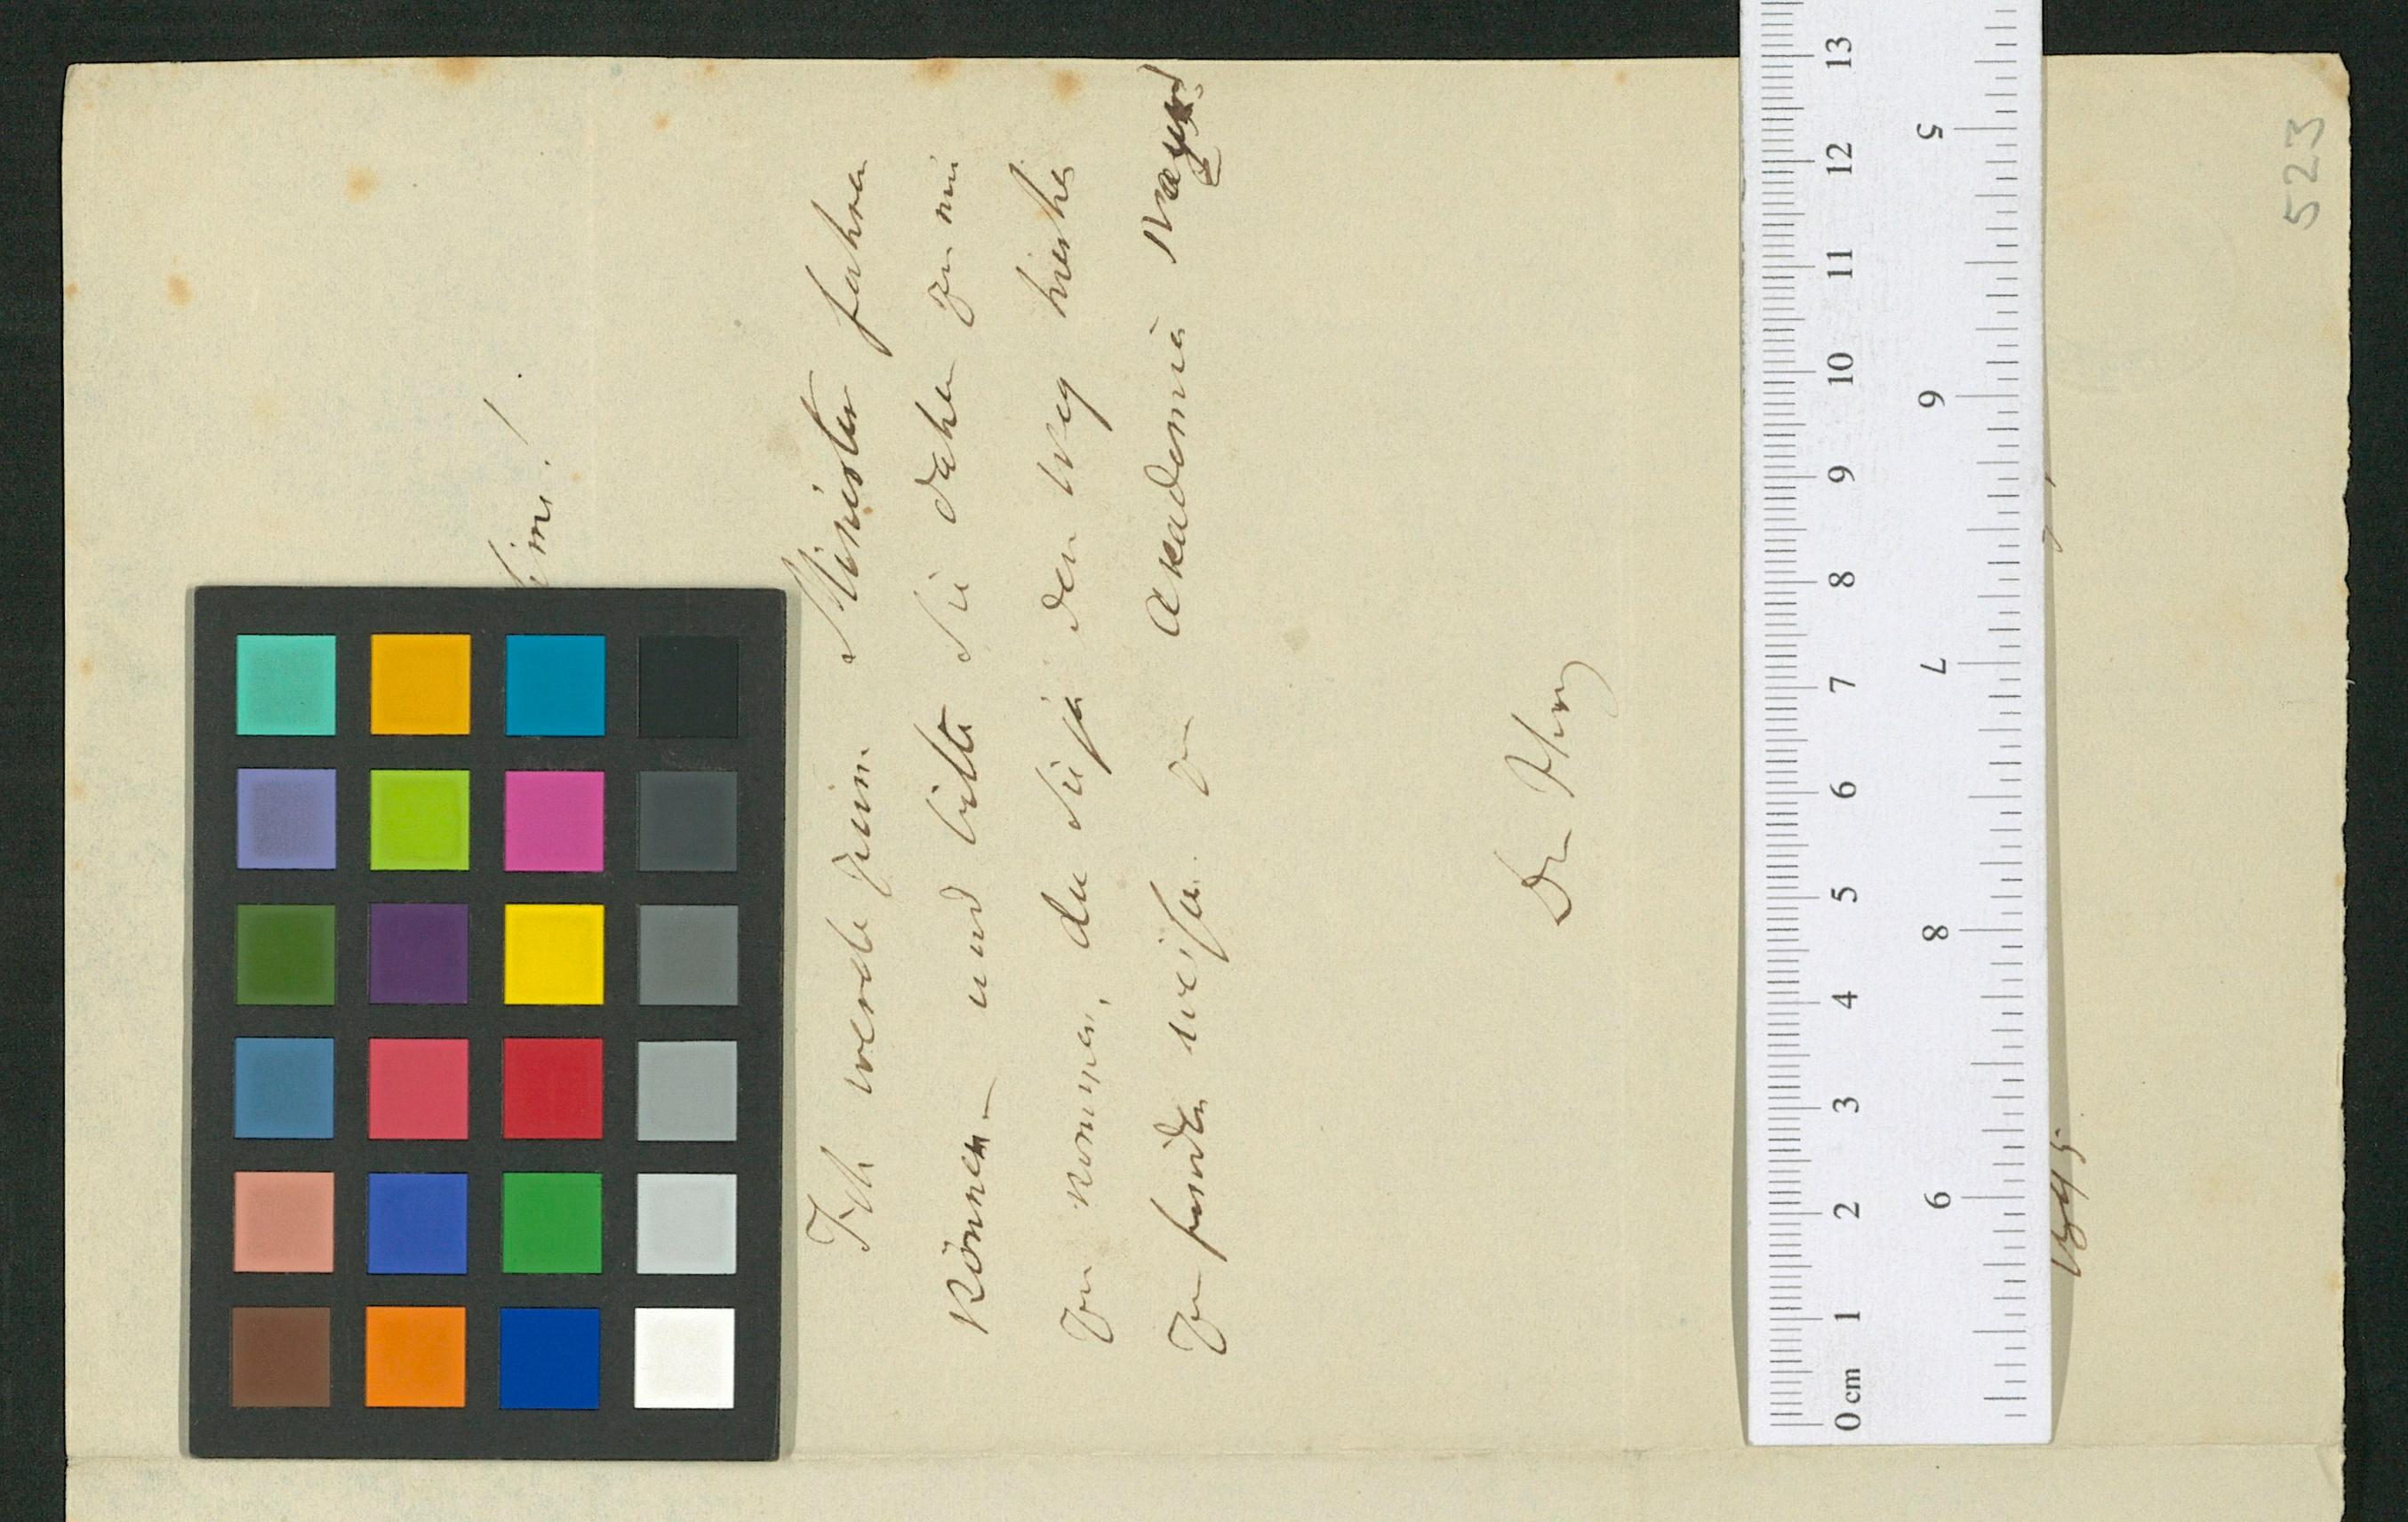 523
Ich werde zum Minister fahren
können – und bitte Sie daher zu mir
zu kommen, da Sie ja den Weg hierher
zu finden wissen. Zur Akademie
Der Ihrig
0 cm 1 2 3 4 5 6 7 8 9 10 11 12 13
5 6 7 8 9